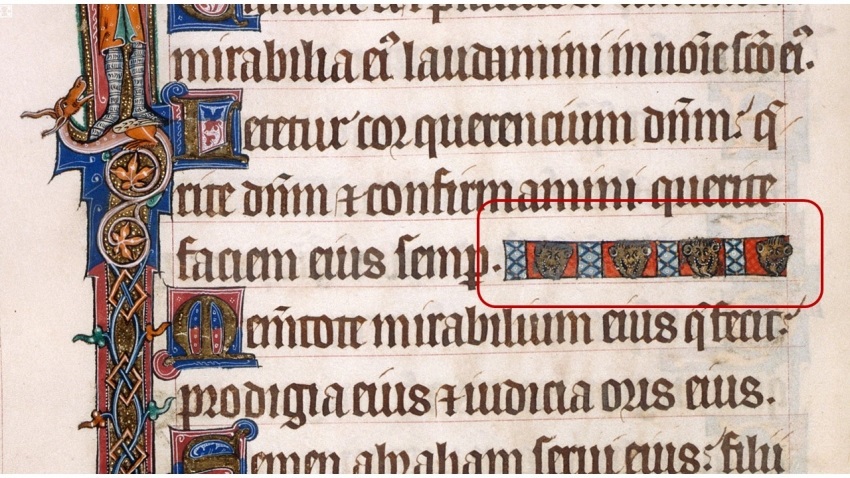 mirabilia eiꝰ laudamini in noĩe sc̃o eiꝰ.
Letetur cor querencium dñm: q̃
rite dñm ⁊ confirmamini querite
faciem eius semꝑ.
Mem̃tote mirabilium eius q̃ fecit:
prodigia eius ⁊ iudicia oris eius.
Semen abraham serui eius: filii